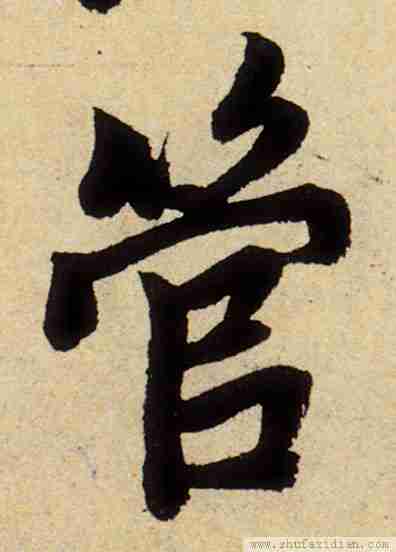 管
www.zhufazidian.com